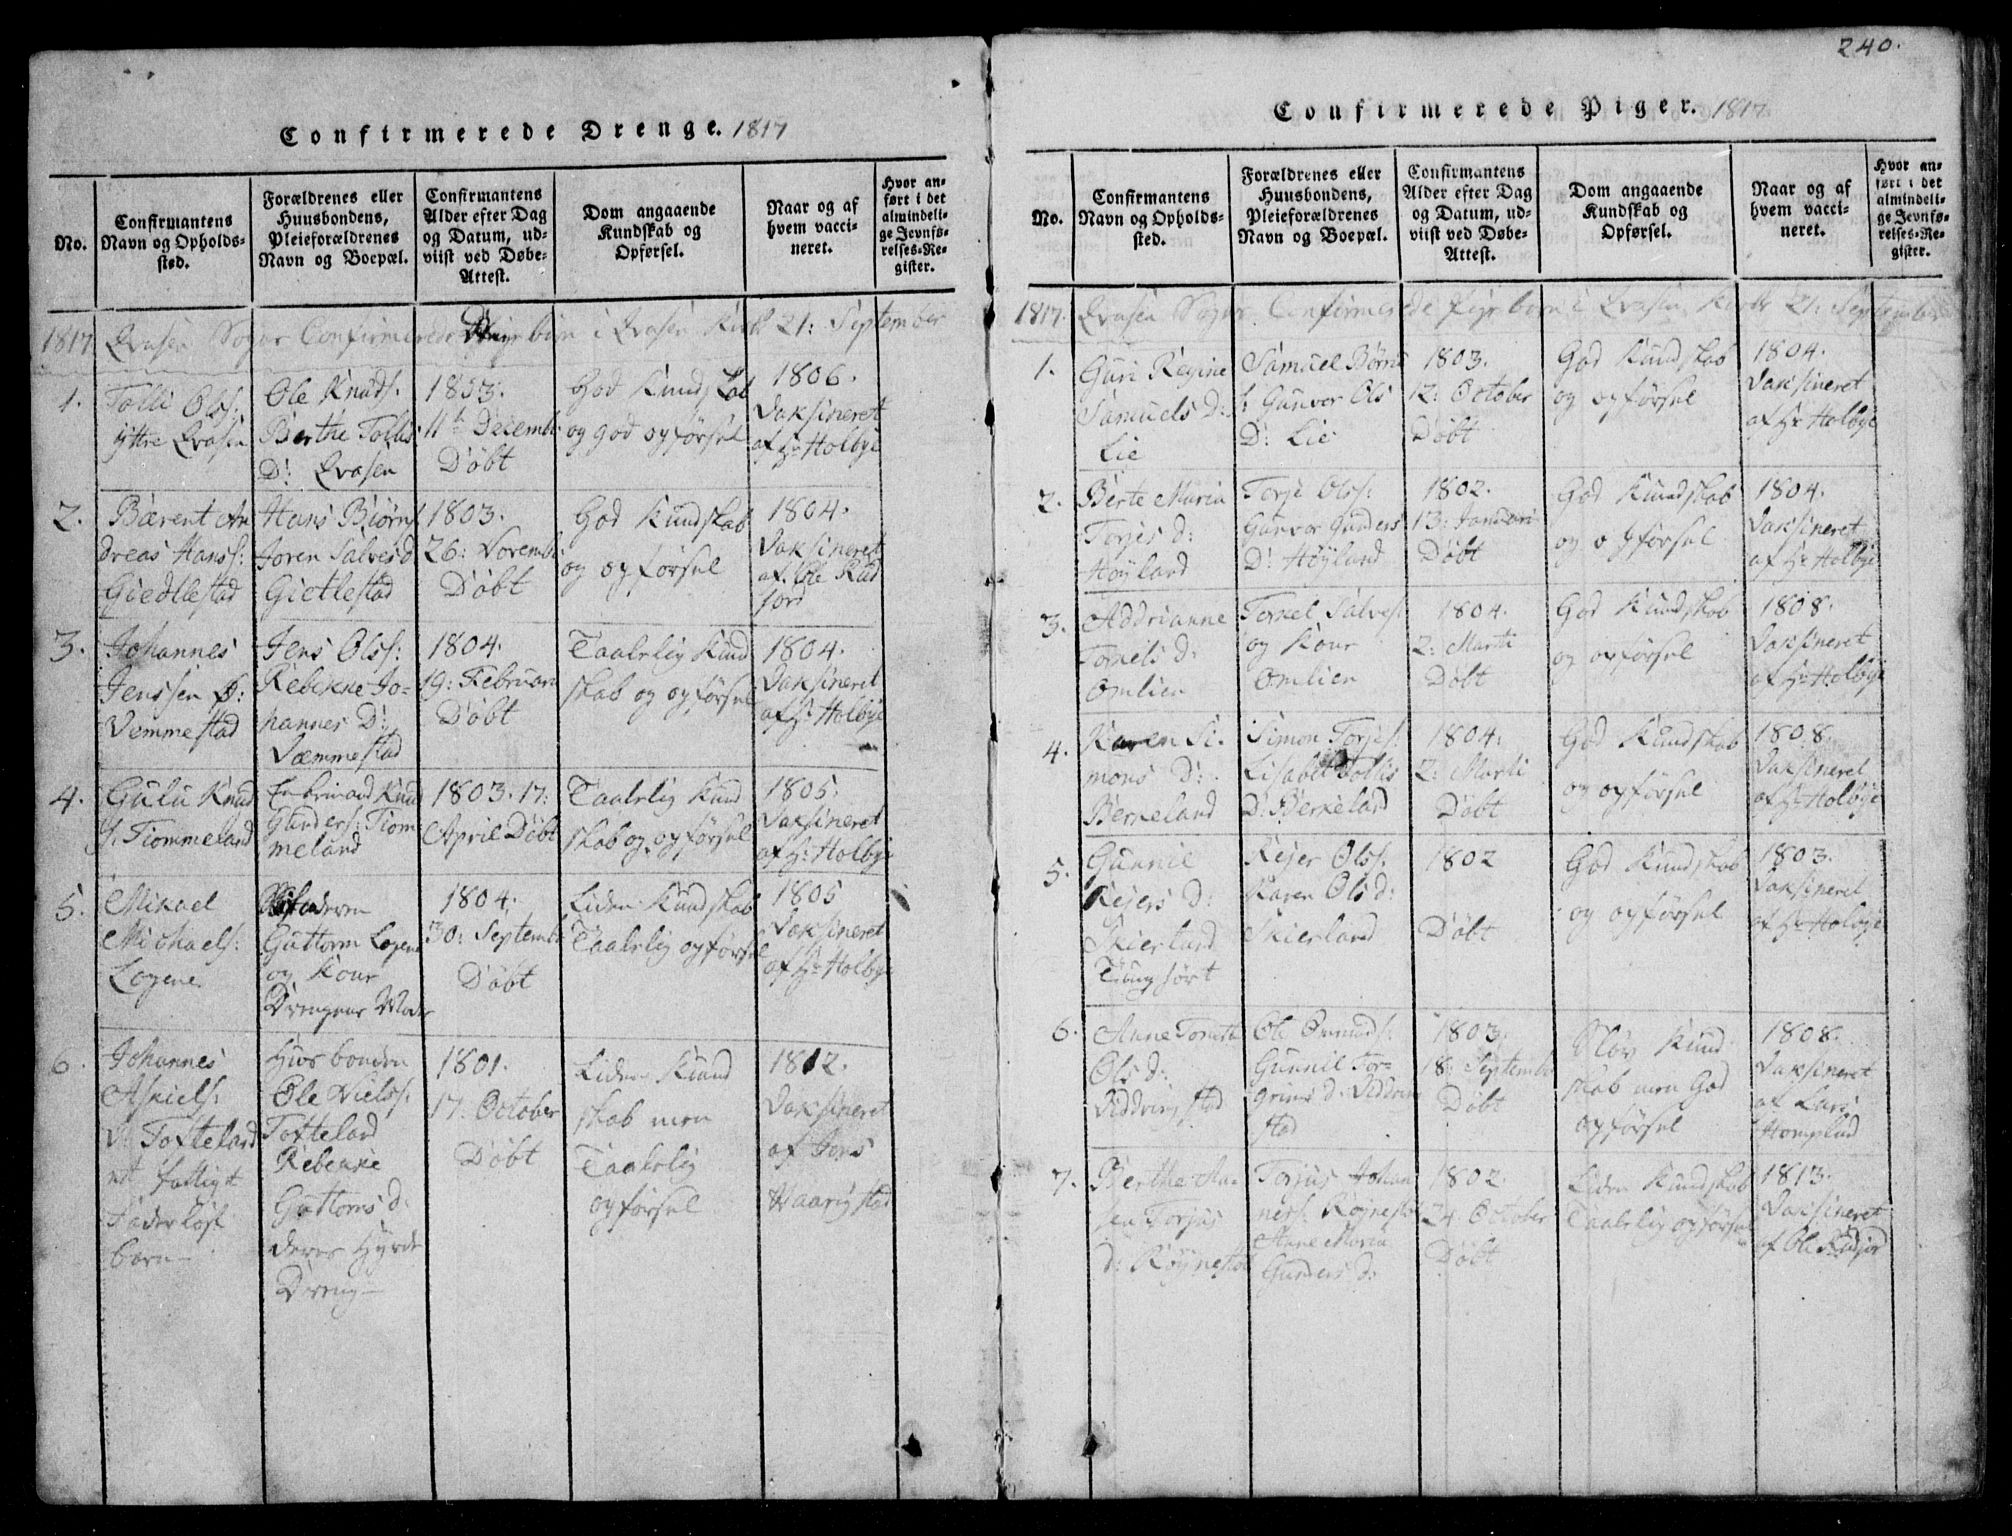 240.
Confirmerede Drenge. 1817
No.
Confirmantens
Navn og Opholds-
sted.
Forældrenes eller
Huusbondens,
Pleieforældrenes
Navn og Boepæl.
Confirmantens
Alder efter Dag
og Datum, ud-
viist ved Døbe-
Attest.
Dom angaaende
Kundskab og
Opførsel.
Naar og af
hvem vacci-
neret.
Hvor an-
ført i det
almindeli-
ge Jevnfø-
relses-Re-
gister.
1817 Qvasen Sogns Confirmerede børn i Qvasen Kirk 21: September
1.
Tolli Ols:
yttre Qvasen
Ole Knuds:
Berthe Tollis
D: Qvasen
1803.
11te Decemb:
Døbt
God Kundskab
og god opførsel
1806.
Vaksineret
af Hr Holbye
2.
Bærent An
dreas Hans:
Giedtlestad
Hans Biørns:
Joren Salves d
Gietlestad
1803.
26: Novemb
Døbt
God Kundskab
og opførsel
1804.
Vaksineret
af Ole Rud
jord
3.
Johannes
Jenssen
Vemmestad
Jens Ols:
Rebekke Jo-
hannes D:
Væmmestad
1804.
19: Februari
Døbt
Taalelig Kund
skab og opførsel
1804.
Vaksineret
af Hr Holbye
4.
Gulu Knud
s. Tiommeland
Knud
Gunders: Tiom
meland
1803. 17:
April Døbt
Taalelig Kund
skab og opførsel
1805:
Vaksineret
af Hr Holbye
5.
Mikael
Michaels:
Logene
Guttorm Logene
og Kone
Drengens Moder
1804:
30: Septemb
Døbt
Liden Kundskab
Taalelig opførsel
1805
Vaksineret
af Hr Holbye
6.
Johannes
Askiels:
Tofteland
et fattigt
Faderløst
barn
Husbonden
Ole Niels:
Tofteland
Rebekke
Guttorms d:
deres Hyrde
Dreng
1801.
17. October
Døbt
Liden Kund
skab men
Taalelig
opførsel
1812.
Vaksineret
af Jens
Haarigstad
Confirmerede Piger. 1817
No.
Confirmantens
Navn og Opholds-
sted.
Forældrenes eller
Huusbondens,
Pleieforældrenes
Navn og Boepæl.
Confirmantens
Alder efter Dag
og Datum, ud-
viist ved Døbe-
Attest.
Dom angaaende
Kundskab og
Opførsel.
Naar og af
hvem vacci-
neret.
Hvor an-
ført i det
almindeli-
ge Jevnfø-
relses-Re-
gister.
1817. Qvasen Sogns Confirmerede Pige børn i Qvasen Kirk 21: September
1.
Guri Regine
Samuels D:
Lie
Samuel Børre
s: Gunvor Ols
D: Lie
1803.
12: October
Døbt
God Kundskab
og opførsel
1804.
Vaksineret
af Hr Holbye
2.
Berte Maria
Torjes d:
Høyland
Torje Ols:
Gunvor Gunders
D: Høyland
1802.
13: Januari
Døbt
God Kundskab
og opførsel
1804.
Vaksineret
af Hr Holbye
3.
Addrianne
Torkels d:
Omlien
Torkel Salves:
og Kone
Omlien
1804.
2: Marti
Døbt
God Kundskab
og opførsel
1808.
Vaksineret
af Hr Holbye
4.
Karen Si-
mons D:
Berkeland
Simon Torjes:
Lisabet Tollis
D: Berkeland
1804:
2: Marti
Døbt
God Kundskab
og opførsel
1808.
Vaksineret
af Hr Holbye
5.
Gunnil
Rejers D:
Skierland
Tungført
Rejer Ols:
Karen Ols d:
Skierland
1802
Døbt
God Kundskab
og opførsel
1803.
Vaksineret
af Hr Holbye
6.
Anne
Ols d:
Viddringstad
Ole Omunds:
Gunnil Tor-
grims d: Viddring
stad
1803.
18: Septembe
Døbt
Sløv Kund
skab men God
opførsel
1808.
Vaksineret
af Lars
Homplad
7.
Berthe An-
sen Torjus
d: Røynestol
Torjus Johan
ners: Røynestol
Anne Maria
Gunders d:
1802.
24. October
Døbt
Liden Kundskab
Taalelig opførsel
1813.
Vaksineret
af Ole Rudjor